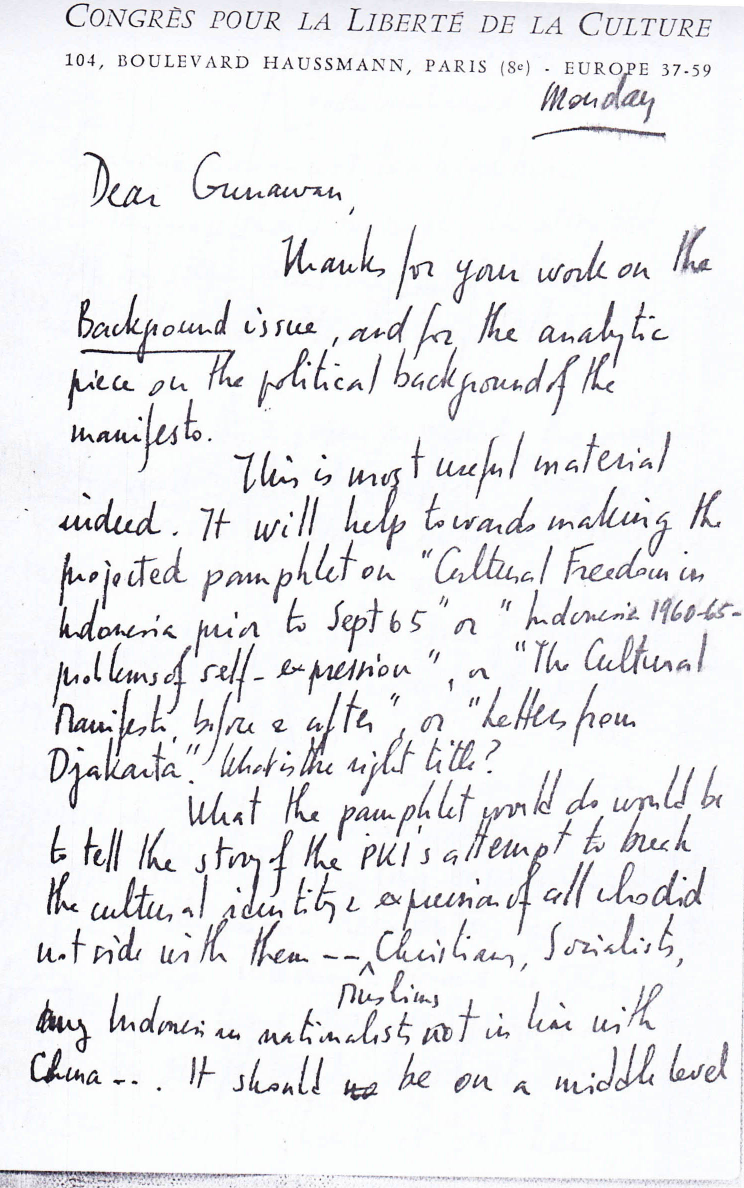 CONGRÈS POUR LA LIBERTÉ DE LA CULTURE
104, BOULEVARD HAUSSMANN, PARIS (8e) - EUROPE 37-59
Monday
Dear Gunawan,
Thanks for your work on the
Background issue, and for the analytic
piece on the political background of the
manifesto.
This is most useful material
indeed. It will help towards making the
projected pamphlet on "Cultural Freedom in
Indonesia prior to Sept 65" or "Indonesia 1960-65-
problems of self-expression", or "The Cultural
Manifesto, before & after", or "Letters from
Djakarta". What is the right title?
What the pamphlet would do would be
to tell the story of the PKI's attempt to break
the cultural identity & expression of all who did
not side with them -- Christians, Socialists,
Muslims
any Indonesian nationalists not in line with
China -- . It should be on a middle level